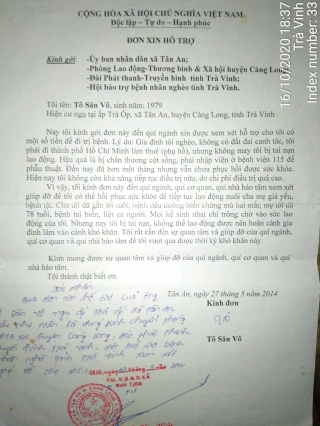 CỘNG HÒA XÃ HỘI CHỦ NGHĨA VIỆT NAM
Độc lập - Tự do - Hạnh phúc
ĐƠN XIN HỖ TRỢ
Kính gởi: -Ủy ban nhân dân xã Tân An;
-Phòng Lao động-Thương binh & Xã hội huyện Càng Long,
-Đài Phát thanh-Truyền hình tỉnh Trà Vinh;
-Hội bảo trợ bệnh nghèo tỉnh Trà Vinh.
Tôi tên: Tô Sân Vô, sinh năm: 1979
Hiện cư ngụ tại ấp Trà Ốp, xã Tân An, huyện Càng Long, tỉnh Trà Vinh
Nay tôi kính gởi đơn này đến quí ngành xin được xem xét hỗ trợ cho tôi có
một số tiền để đi trị bệnh. Lý do: Gia đình tôi nghèo, không có đất đai canh tác, tôi
phải đi thành phố Hồ Chí Minh làm thuê (phụ hồ), nhưng không may tôi bị tai nạn
lao động. Hậu quả là bị chấn thương cột sống, phải nhập viện ở bệnh viện 115 để
phẫu thuật. Đến nay đã hơn một tháng nhưng vẫn chưa phục hồi được sức khỏe.
Hiện nay tôi không còn khả năng tiếp tục điều trị nữa, chi phí điều trị quá cao.
Vì vậy, tôi kính đơn này đến quí ngành, quí cơ quan, quí nhà hảo tâm xem xét
giúp đỡ để tôi có thể hồi phục sức khỏe để tiếp tục lao động nuôi cha mẹ già yếu,
bệnh tật: Cha tôi đã gần 80 tuổi, bệnh tiểu đường biến chứng mù hai mắt; mẹ tôi
78 tuổi, bệnh tai biến, liệt cả người. Mọi kế sinh nhai chỉ trông chờ vào sức lao
động của tôi. Nhưng nay tôi bị tai nạn, không thể lao động được nên hoàn cảnh gia
đình lâm vào cảnh khó khăn. Tôi rất cần đến sự quan tâm và giúp đỡ của quí ngành,
quí cơ quan và quí nhà hảo tâm để tôi vượt qua được thời kỳ khó khăn này.
Kính mong được sự quan tâm và giúp đỡ của quí ngành, quí cơ quan và quí
nhà hảo tâm.
Tôi thành thật biết ơn.
Tân An, ngày 27 tháng 5 năm 2014
Kính đơn
Vô
Tô Sân Vô
Xác nhận
TM. U.B.N.D XÃ
16/10/2020 18:37
Trà Vinh
Index number: 33